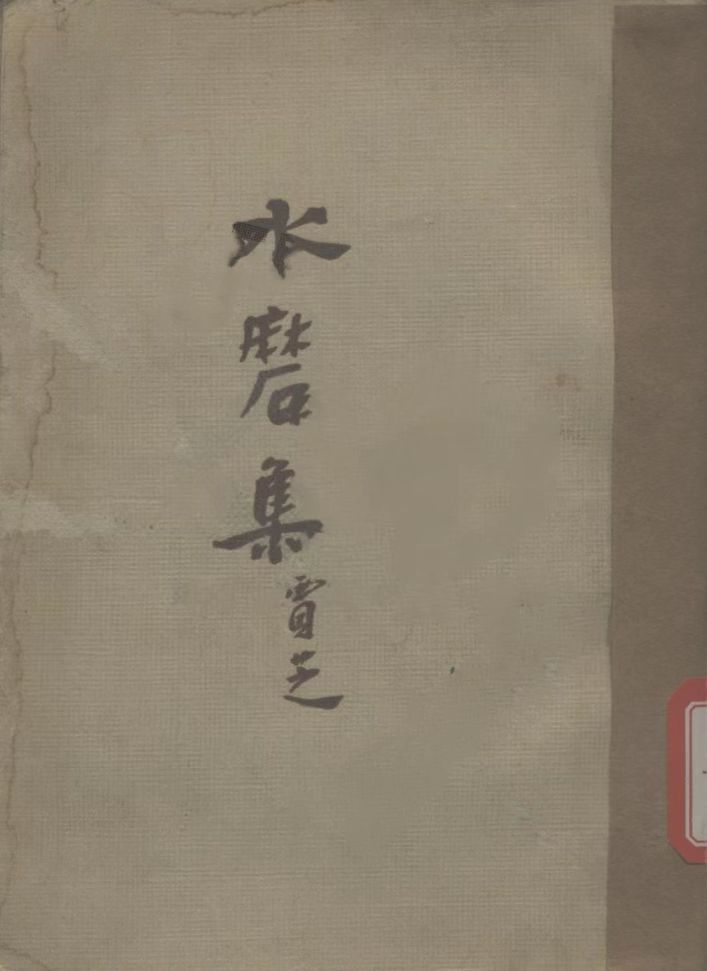 水磨集
贾芝